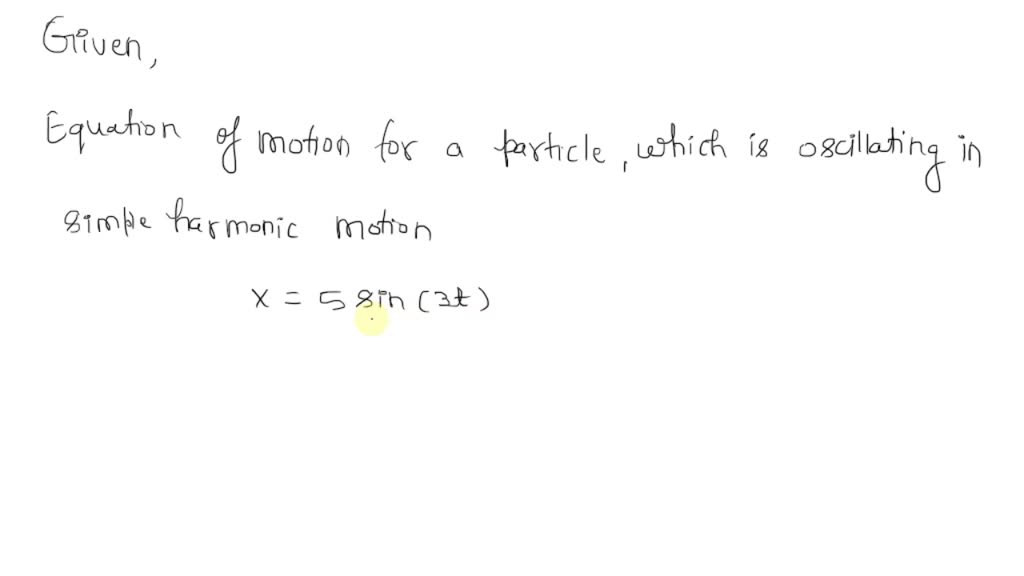 Given,
Equation of motion for a particle, which is oscillating in
simple harmonic motion
x = 5 sin (3t)